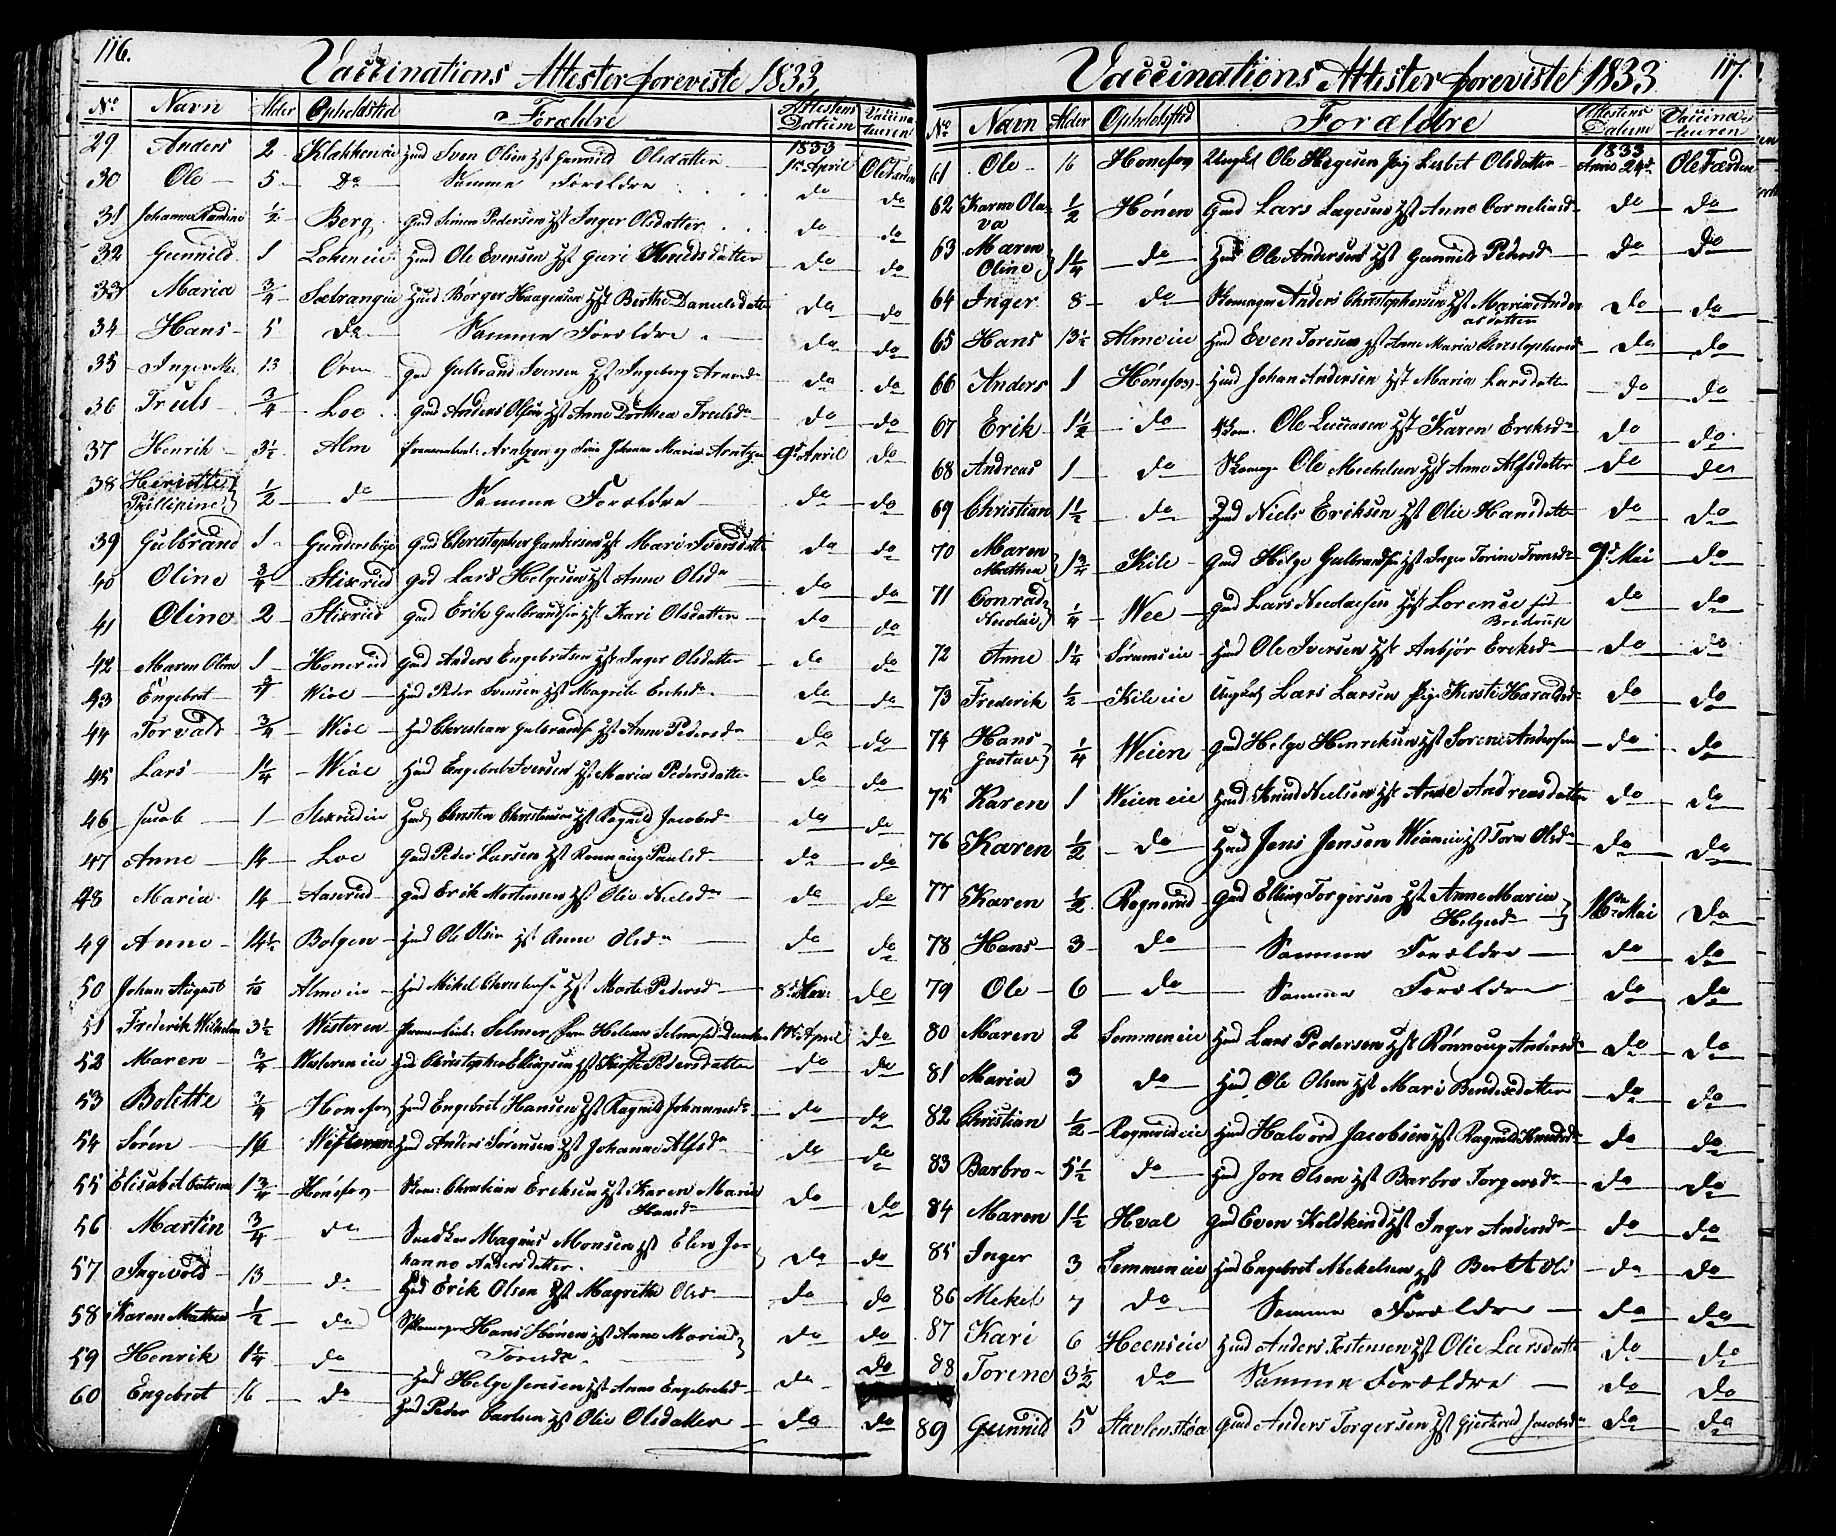 116.
Vaccinations Attester foreviste 1833.
No Navn Alder Opholdsted Forældre Attestens Datum Vaccinateuren
29 Anders 2 Klækkeneie Huusmd Sven Olsen Hst Gunnild Olsdatter 1833 1st April Ole Færden
30 Ole 5 Do Samme Forældre do do
31 Johanne Randine 1/2 Berg Gmd Simen Pedersen Hst Inger Olsdatter do do
32 Gunnild 1 Hmd Ole Evensen Hst Guri Knudsdatter do do
33 Maria 3/4 Sætrangeie Hmd Børger Haagensen Hst Berthe Danielsdatter do do
34 Hans 5 do Samme Forældre do do
35 Inger Ma. 13 Oven Gmd Gulbrand Iversen Hst Ingeborg Arnesd do do
36 Truls 3/4 Loe Gmd Anders Olsen Hst Anne Dorthea Trulsdr do do
37 Henrik 3 1/2 Alm Arntzen og Johanne Maria Arntzen 9d April do
38 Henriette Phillipine 1/2 do Samme Forældre do do
39 Gulbrand 1 Gundersbye Gmd Christopher Gundersen Hst Mari Iversdatter do do
40 Oline 3/4 Stixrud Gmd Lars Helgesen Hst Anne Olsdr do do
41 Oline 2 Stixrud Gmd Erik Gulbrandsen Hst Kari Olsdatter do do
42 Maren Oline 1 Honerud Gmd Anders Engebretsen Hst Inger Olsdatter do do
43 Engebret Wiøl Hmd Peder Svensen Hst Magrite Ericksd do do
44 Torvald 3/4 Wiøl Hmd Christian Gulbrands Hst Anne Pedersdr do do
45 Lars 1 1/4 Wiøl Hmd Engebret Iversen Hst Maria Pedersdatter do do
46 Jacob 1 Stixrudeie Hmd Christen Christensen Hst Ragnild Jacobsdr do do
47 Anne 14 Loe Gmd Peder Larsen Hst Rønnoug Paulsdr do do
48 Maria 14 Aaserud Gmd Erik Mortensen Hst Olie Nielsdr do do
49 Anne 14 1/2 Bolgen Hmd Ole Olsen Hst Anne Olsdr do do
50 Johan August 1/10 Almeie Hmd Mikel Hst Marte Pedersdr 8d do
51 Frederik Wilhelm 3 1/2 Westeren Selmer Fru Helene Selmer fød 17d April do
52 Maren 3/4 Westereneie Hmd Christopher Ellingsen Hst Kirsti Pedersdatter do do
53 Bolette 3/4 Hønefos Hmd Engebret Hansen Hst Ragnild Johannesdr do do
54 Søren 16 Westeren Hmd Anders Sørensen Hst Johanne Alfsdr do do
55 Elisabet Catrine 1 3/4 Hønefos Skom: Christian Ericksen Hst Karen Maria Hansdr do do
56 Martin 3/4 do Snedker Magnus Monsen Hst Elen Johanne Andersdatter do do
57 Ingevold 13 do Hmd Erik Olsen Hst Magrithe Olsd do do
58 Karen Mathea 1/2 do Skomager Hans Hønen Hst Anne Maria Toresdr do do
59 Henrik 1 1/4 do Hmd Helge Jensen Hst Anne Engebretsd do do
60 Engebret 16 do Hmd Peder Carlsen Hst Olie Olsdatter do do
117.
Vaccinations Attester foreviste 1833
No Navn Alder Opholdsted Forældre Attestens Datum Vaccinateuren
61 Ole 16 Hønefos Ungkl Ole Hegesen Pig Lisbet Olsdatter 1833 24d Ole Færden
62 Karen Olava 1/2 Hønen Gmd Lars Lagesen Hst Anne Corneliusd do do
63 Maren Oline 1 1/4 do Hmd Ole Andersen Hst Gunnild Pedersd do do
64 Inger 8 do Skomager Anders Christophersen Hst Maria Andreasdatter do do
65 Hans 13 1/2 Almeie Hmd Even Toresen Hst Anne Maria Christophersd do do
66 Anders 1 Hønefos Hmd Johan Andersen Hst Maria Larsdatter do do
67 Erik 1 1/2 do Skom. Ole Lucasen Hst Karen Ericksdr do do
68 Andreas 1 do Skomager Ole Mickelsen Hst Anne Alfsdatter do do
69 Christian 1 1/2 do Hmd Niels Eriksen Hst Olie Hansdatter do do
70 Maren Mathea 1 3/4 Kile Gmd Helge Gulbrandsen Hst Inger Torine Tronsdr 9d Mai do
71 Conrad Nicolai 1/4 Wee Gmd Lars Nicolaisen Hst Lorense fød do do
72 Anne 1 1/4 Sørumseie Hmd Ole Iversen Hst Anbjør Ericksd do do
73 Frederik 1/2 Kileeie Ungkarl Lars Larsen Pige Kirsti Haraldsd do do
74 Hans Gustav 1/4 Weien Gmd Helge Henriksen Hst Sørene Andersen do do
75 Karen 1 Weieneie Hmd Knud Nielsen Hst Anne Andreasdatter do do
76 Karen 1/2 do Hmd Jens Jensen Weieneie Hst Torn Olsdr do do
77 Karen 1/2 Rognerud Gmd Elling Torgersen Hst Anne Maria Helgesdr 16de Mai do
78 Hans 3 do Samme Forældre do do
79 Ole 6 do Samme Forældre do do
80 Maren 2 Semmeneie Hmd Lars Pedersen Hst Rønnoug Andersd do do
81 Maria 3 do Hmd Ole Olsen Hst Mari Bendixdatter do do
82 Christian 1/2 Rognerudeie Hmd Halvord Jacobsen Hst Ragnild Knudsdr do do
83 Barbro 5 1/2 do Hmd Jon Olsen Hst Barbro Torgersdr do do
84 Maren 1 1/2 Hval Gmd Even Koldkind Hst Inger Andersdr do do
85 Inger 3 Semmeneie Hmd Engebret Mikelsen Hst Berthe Oli do do
86 Mekel 7 do Samme Forældre do do
87 Kari 6 Heenseie Hmd Anders Torstensen Hst Olie Larsdatter do do
88 Torine 3 1/2 do Samme Forældre do do
89 Gunnild 5 Stavlenstøa Gmd Anders Torgersen Hst Gjertrud Jacobsdr do do